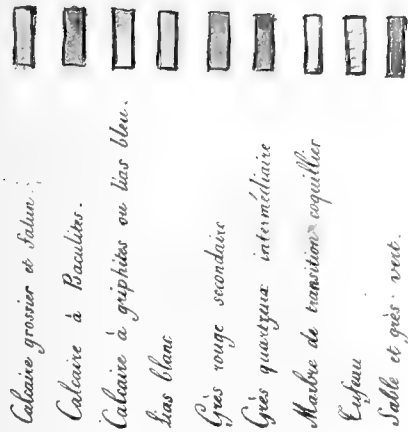 Calcaire grossier et Falun.
Calcaire à Baculites.
Calcaire à griphites ou lias bleu.
Lias blanc
Grès rouge secondaire
Grès quartzeux intermédiaire
Marbre de transition coquillier
Tufeau
Sable et grès vert.